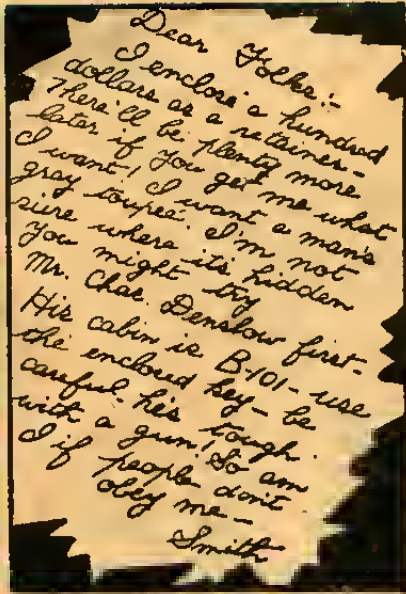 Dear Folks:-
I enclose a hundred
dollars as a retainer-
There'll be plenty more
later if you get me what
I want! I want a man's
gray toupee. I'm not
sure where it's hidden
you might try
Mr. Chas. Denshow first-
His cabin is B-101- use
the enclosed key- be
careful- he's tough
with a gun! So am
I if people don't
obey me-
Smith